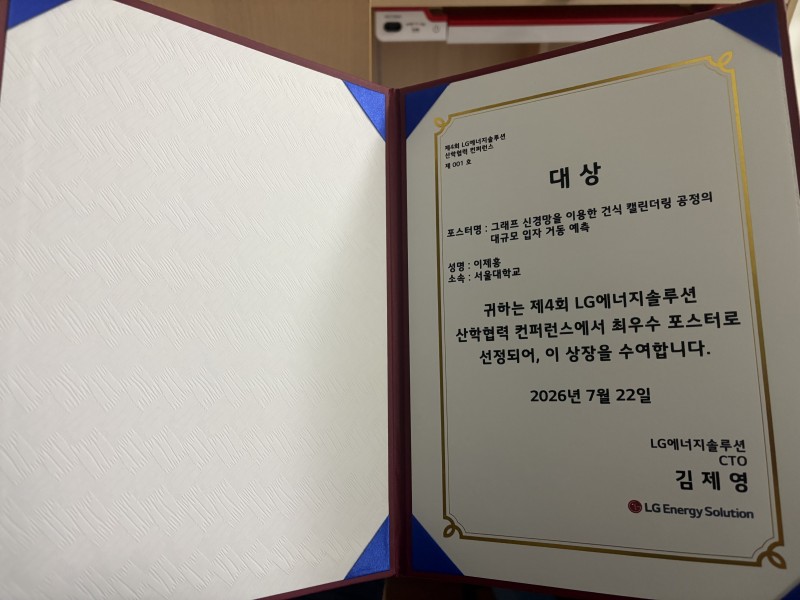 제4회 LG에너지솔루션
산학협력 컨퍼런스
제 001 호
대 상
포스터명 : 그래프 신경망을 이용한 건식 캘린더링 공정의
대규모 입자 거동 예측
성명 : 이제흥
소속 : 서울대학교
귀하는 제4회 LG에너지솔루션
산학협력 컨퍼런스에서 최우수 포스터로
선정되어, 이 상장을 수여합니다.
2026년 7월 22일
LG에너지솔루션
CTO
김 제 영
LG Energy Solution